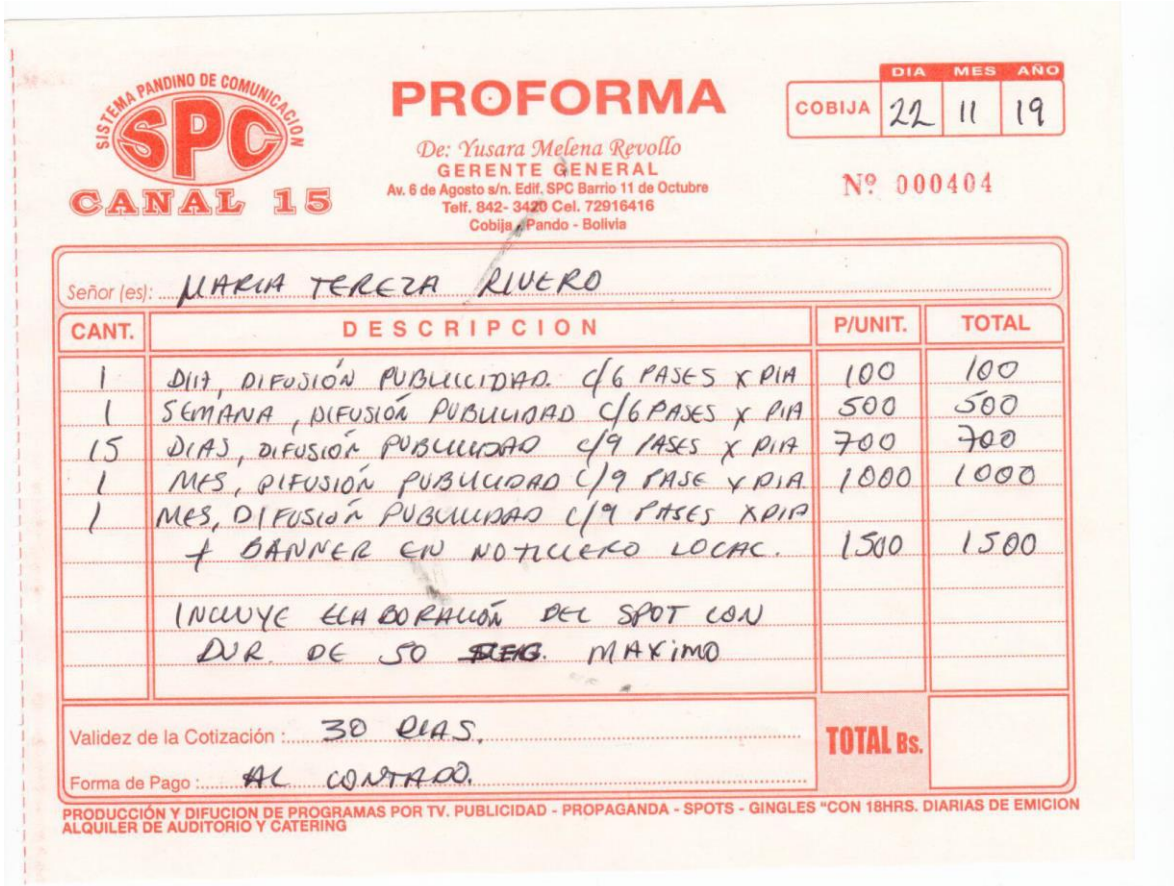 SISTEMA PANDINO DE COMUNICACION
SPC
CANAL 15
PROFORMA
De: Yusara Melena Revollo
GERENTE GENERAL
Av. 6 de Agosto s/n. Edif. SPC Barrio 11 de Octubre
Telf. 842- 3420 Cel. 72916416
Cobija - Pando - Bolivia
DIA MES AÑO
COBIJA 22 11 19
Nº 000404
Señor (es): MARIA TEREZA RIVERO
CANT. DESCRIPCION P/UNIT. TOTAL
1 DIA, DIFUSIÓN PUBLICCIDAD. C/6 PASES X DIA 100 100
1 SEMANA, DIFUSIÓN PUBLICIDAD C/6 PASES X DIA 500 500
15 DIAS, DIFUSIÓN PUBLICIDAD C/9 PASES X DIA 700 700
1 MES, DIFUSIÓN PUBLICIDAD C/9 PASE X DIA 1000 1000
1 MES, DIFUSIÓN PUBLICIDAD C/9 PASES X DIA
+ BANNER EN NOTICIERO LOCAL. 1500 1500
INCLUYE ELABORACIÓN DEL SPOT CON
DUR. DE 50 SEG. MAXIMO
Validez de la Cotización : 30 DIAS.
Forma de Pago : AL CONTADO.
TOTAL Bs.
PRODUCCIÓN Y DIFUCION DE PROGRAMAS POR TV. PUBLICIDAD - PROPAGANDA - SPOTS - GINGLES "CON 18HRS. DIARIAS DE EMICION
ALQUILER DE AUDITORIO Y CATERING